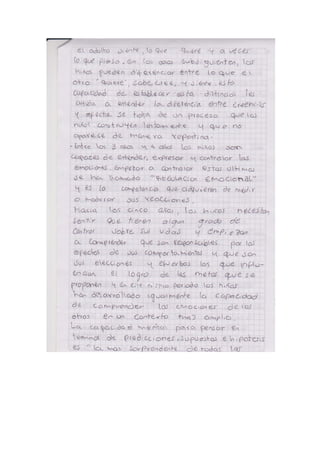 el adulto siente, lo que quiere y a veces
lo que piensa. en los años subsiguientes, los
niños pueden diferenciar entre lo que el
otro "quiere", sabe, cree, y siente. Esta
capacidad de establecer esta distinción les
ayuda a entender la diferencia entre creencias
y afecto. Se trata de un proceso que los
niños construyen lentamente y que no
aparece de manera repentina.
- Entre los 3 años y 4 años los niños son
capaces de entender, expresar y controlar las
emociones. empiezan a controlar estas últimas
se han llamado "Regulación Emocional"
y es la competencia que adquieren de medir
o moderar sus reacciones.
Hacia los cinco años, los niños necesitan
sentir que tienen algún grado de
control sobre sus vidas y empiezan
a comprender que son responsables por los
efectos de sus comportamientos y que son
sus elecciones y esfuerzos los que influ-
encian el logro de las metas que se
proponen y en este mismo periodo los niños
han desarrollado igualmente la capacidad
de comprender las emociones de los
otros en un contexto más amplio.
La capacidad mental para pensar en
términos de predicciones, supuestos e hipótesis
es "la más sorprendente de todas las